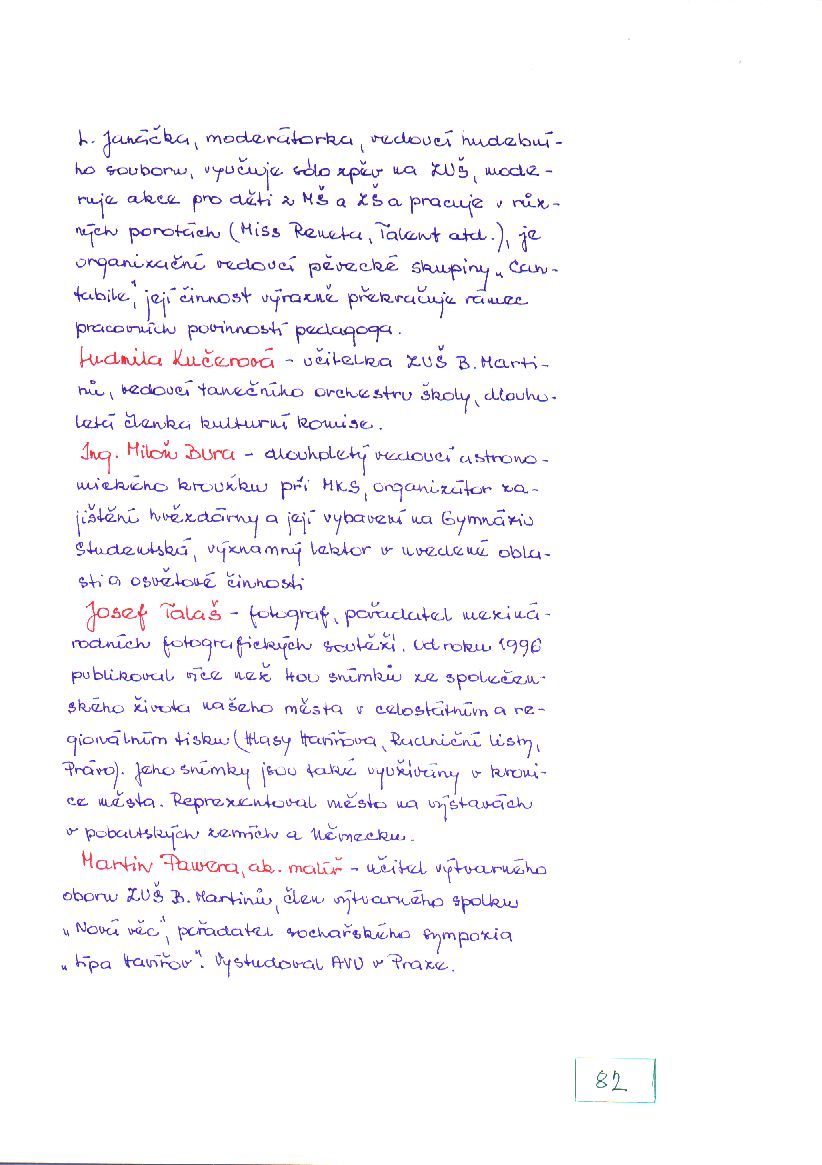 L. Janáčka, moderátorka, vedoucí hudební-
ho souboru, vyučuje sólo zpěv na ZUŠ, mode-
ruje akce pro děti z MŠ a ZŠ a pracuje v růz-
ných porotách (Miss Reneta, Talent atd.), je
organizační vedoucí pěvecké skupiny „Can-
tabile", její činnost výrazně překračuje rámec
pracovních povinností pedagoga.
Ludmila Kučerová - učitelka ZUŠ B. Marti-
nů, vedoucí tanečního orchestru školy, dlouho-
letá členka kulturní komise.
Ing. Miloň Bura - dlouholetý vedoucí astrono-
mického kroužku při MKS, organizátor za-
jištění hvězdárny a její vybavení na Gymnáziu
Studentská, významný lektor v uvedené obla-
sti a osvětové činnosti
Josef Talaš - fotograf, pořadatel meziná-
rodních fotografických soutěží. Od roku 1996
publikoval více než 400 snímků ze společen-
ského života našeho města v celostátním a re-
gionálním tisku (Hlasy Havířova, Radniční listy,
Právo). Jeho snímky jsou také využívány v kroni-
ce města. Reprezentoval město na výstavách
v pobaltských zemích a Německu.
Martin Pawera, ak. malíř - učitel výtvarného
oboru ZUŠ B. Martinů, člen výtvarného spolku
„Nová věc", pořadatel sochařského sympozia
„Lípa Havířov". Vystudoval AVU v Praze.
82